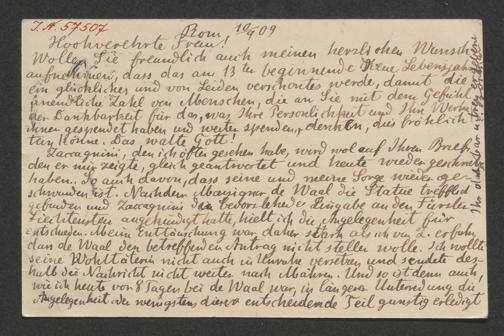 J.N. 57507
Rom, 10/9 09
Hochverehrte Frau!
Wollen Sie freundlich auch meinen herzlichen Wunsch
aufnehmen, dass das am 13ten beginnende neue Lebensjahr
ein glückliches und von Leiden verschontes werde, damit die
unendliche Zahl von Menschen, die an Sie mit dem Gefühl
der Dankbarkeit für das, was Ihre Persönlichkeit und Ihre Werke
ihnen gespendet haben und weiter spenden, denken, dies fröhlich
tun könne. Das walte Gott!
Zaccagnini, den ich öfter gesehen habe, wird wol auf Ihren Brief,
den er mir zeigte, gleich geantwortet und heute wieder geschrieben
haben. So auch davon, dass seine und meine Sorge wieder ge-
schwunden ist. Nachdem de Waal die Statue trefflich
gefunden und Zaccagnini die bevorstehende Eingabe an den Fürsten
Liechtenstein angekündigt hatte, hielt ich die Angelegenheit für
entschieden. Meine Enttäuschung war daher stark als ich von Z. erfuhr,
dass de Waal den betreffenden Antrag nicht stellen wolle. Ich wollte
seine Wohltäterin nicht auch in Unruhe versetzen und sendete des-
halb die Nachricht nicht weiter nach Mähren. Und so ist denn auch,
wie ich heute vor 8 Tagen bei de Waal war, in längerer Unterredung die
Angelegenheit der wenigstens dieser entscheidende Teil günstig erledigt